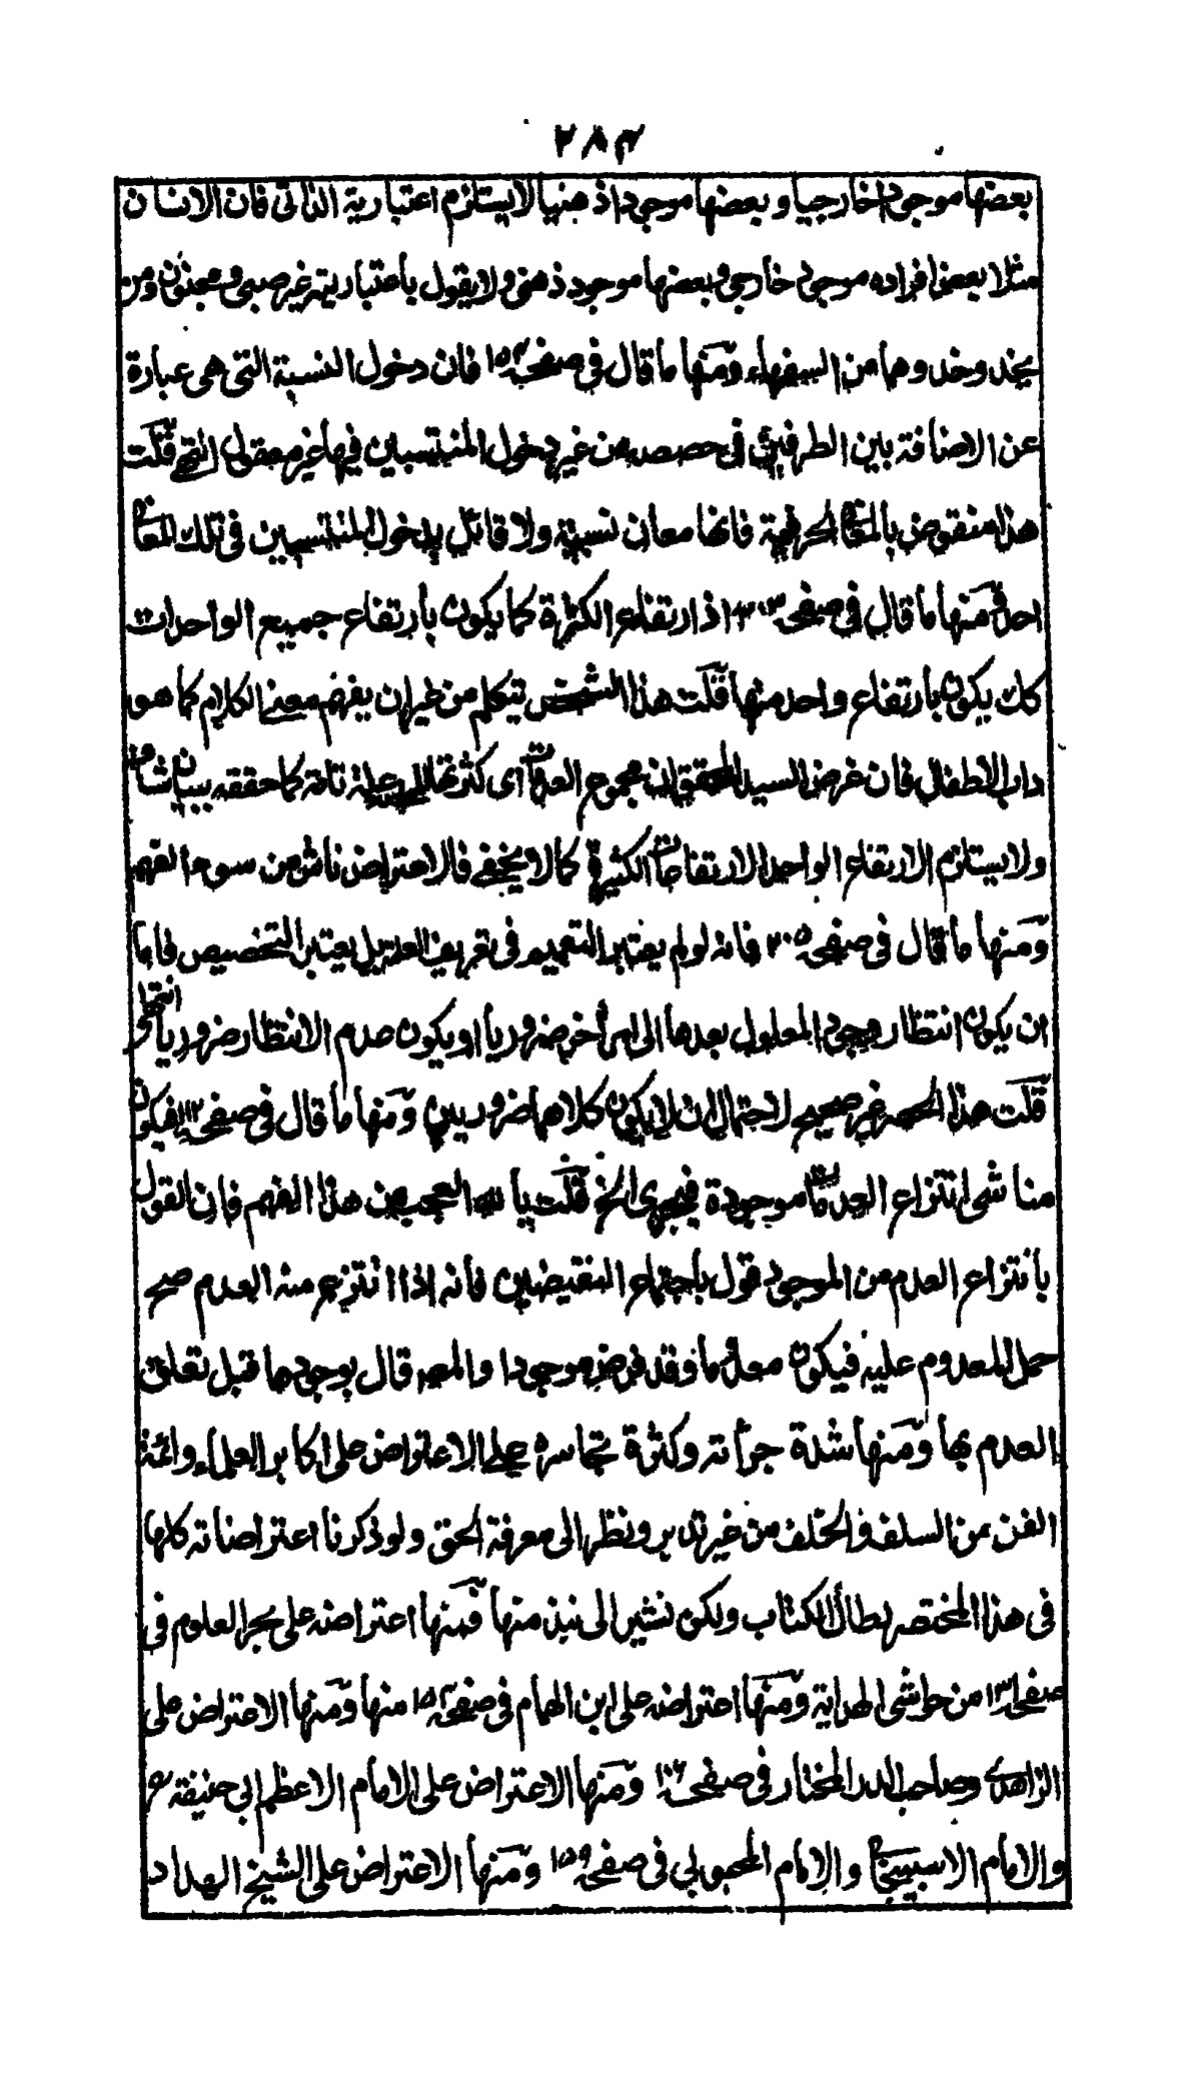 ٢٨٣
بعضها موجودا خارجيا و بعضها موجودا ذهنيا لا يستلزم اعتبارية الثانى فان الانسان
مثلا بعض افراده موجود خارجى وبعضها موجود ذهنى ولا يقول باعتباريته غير صبى ومجنون ومن
يحذو حذوهما من السفهاء ومنها ما قال فى صفحه ١٥٢ فان دخول النسبة التى هى عبارة
عن الاضافة بين الطرفين فى حصصه من غير دخول المنتسبين فيها غير معقول انتهى قلت
هذا منقوض بالمعانى الحرفية فانها معان نسبية ولا قائل بدخول المنتسبين فى تلك المعانى
احد ومنها ما قال فى صفحه ٢٠٣ اذ ارتفاع الكثرة كما يكون بارتفاع جميع الواحدات
كك يكون بارتفاع واحد منها قلت هذا الشخص يتكلم من غير ان يفهم معنى الكلام كما هو
داب الاطفال فان غرض السيد المحقق ان مجموع العدمات اى كثرتها علة تامة كما حققه ببيان شاف
ولا يستلزم الارتفاع الواحد الارتفاعات الكثيرة كما لا يخفى فالاعتراض ناش من سوء الفهم
ومنها ما قال فى صفحه ٢٠٥ فانه لو لم يعتبر التعميم فى تعريف العلة بل يعتبر التخصيص فاما
ان يكون انتظار وجود المعلول بعدها الى امر أخر ضروريا او يكون عدم الانتظار ضروريا انتهى
قلت هذا الحصر غير صحيح لاحتمال ان لا يكون كلاهما ضروريين ومنها ما قال فى صفحه فيكون
مناشى انتزاع العدمات موجودة فيجرى الخ قلت يا لله العجب من هذا الفهم فان القول
بانتزاع العدم من الموجود قول باجتماع النقيضين فانه اذا انتزع منه العدم صح
حمل المعدوم عليه فيكون معدوما وقد فرض موجودا والمصـ قال بوجودها قبل تعلق
العدم بها ومنها شدة جرأته وكثرة تجاسره على الاعتراض على اكابر العلماء وائمة
الفن من السلف والخلف من غير تدبر ونظر الى معرفة الحق ولو ذكرنا اعتراضاته كلها
فى هذا المختصر لطال الكتاب ولكن نشير الى نبذ منها فمنها اعتراضه على بحر العلوم فى
صفحه ١٣ من حواشى الهداية ومنها اعتراضه على ابن الهمام فى صفحه ١٥٢ منها ومنها الاعتراض على
الزاهدى وصاحب الدر المختار فى صفحه ومنها الاعتراض على الامام الاعظم ابى حنيفة رح
والامام الاسبيجابى والامام المحبوبى فى صفحه ١٥٩ ومنها الاعتراض على الشيخ الهداد